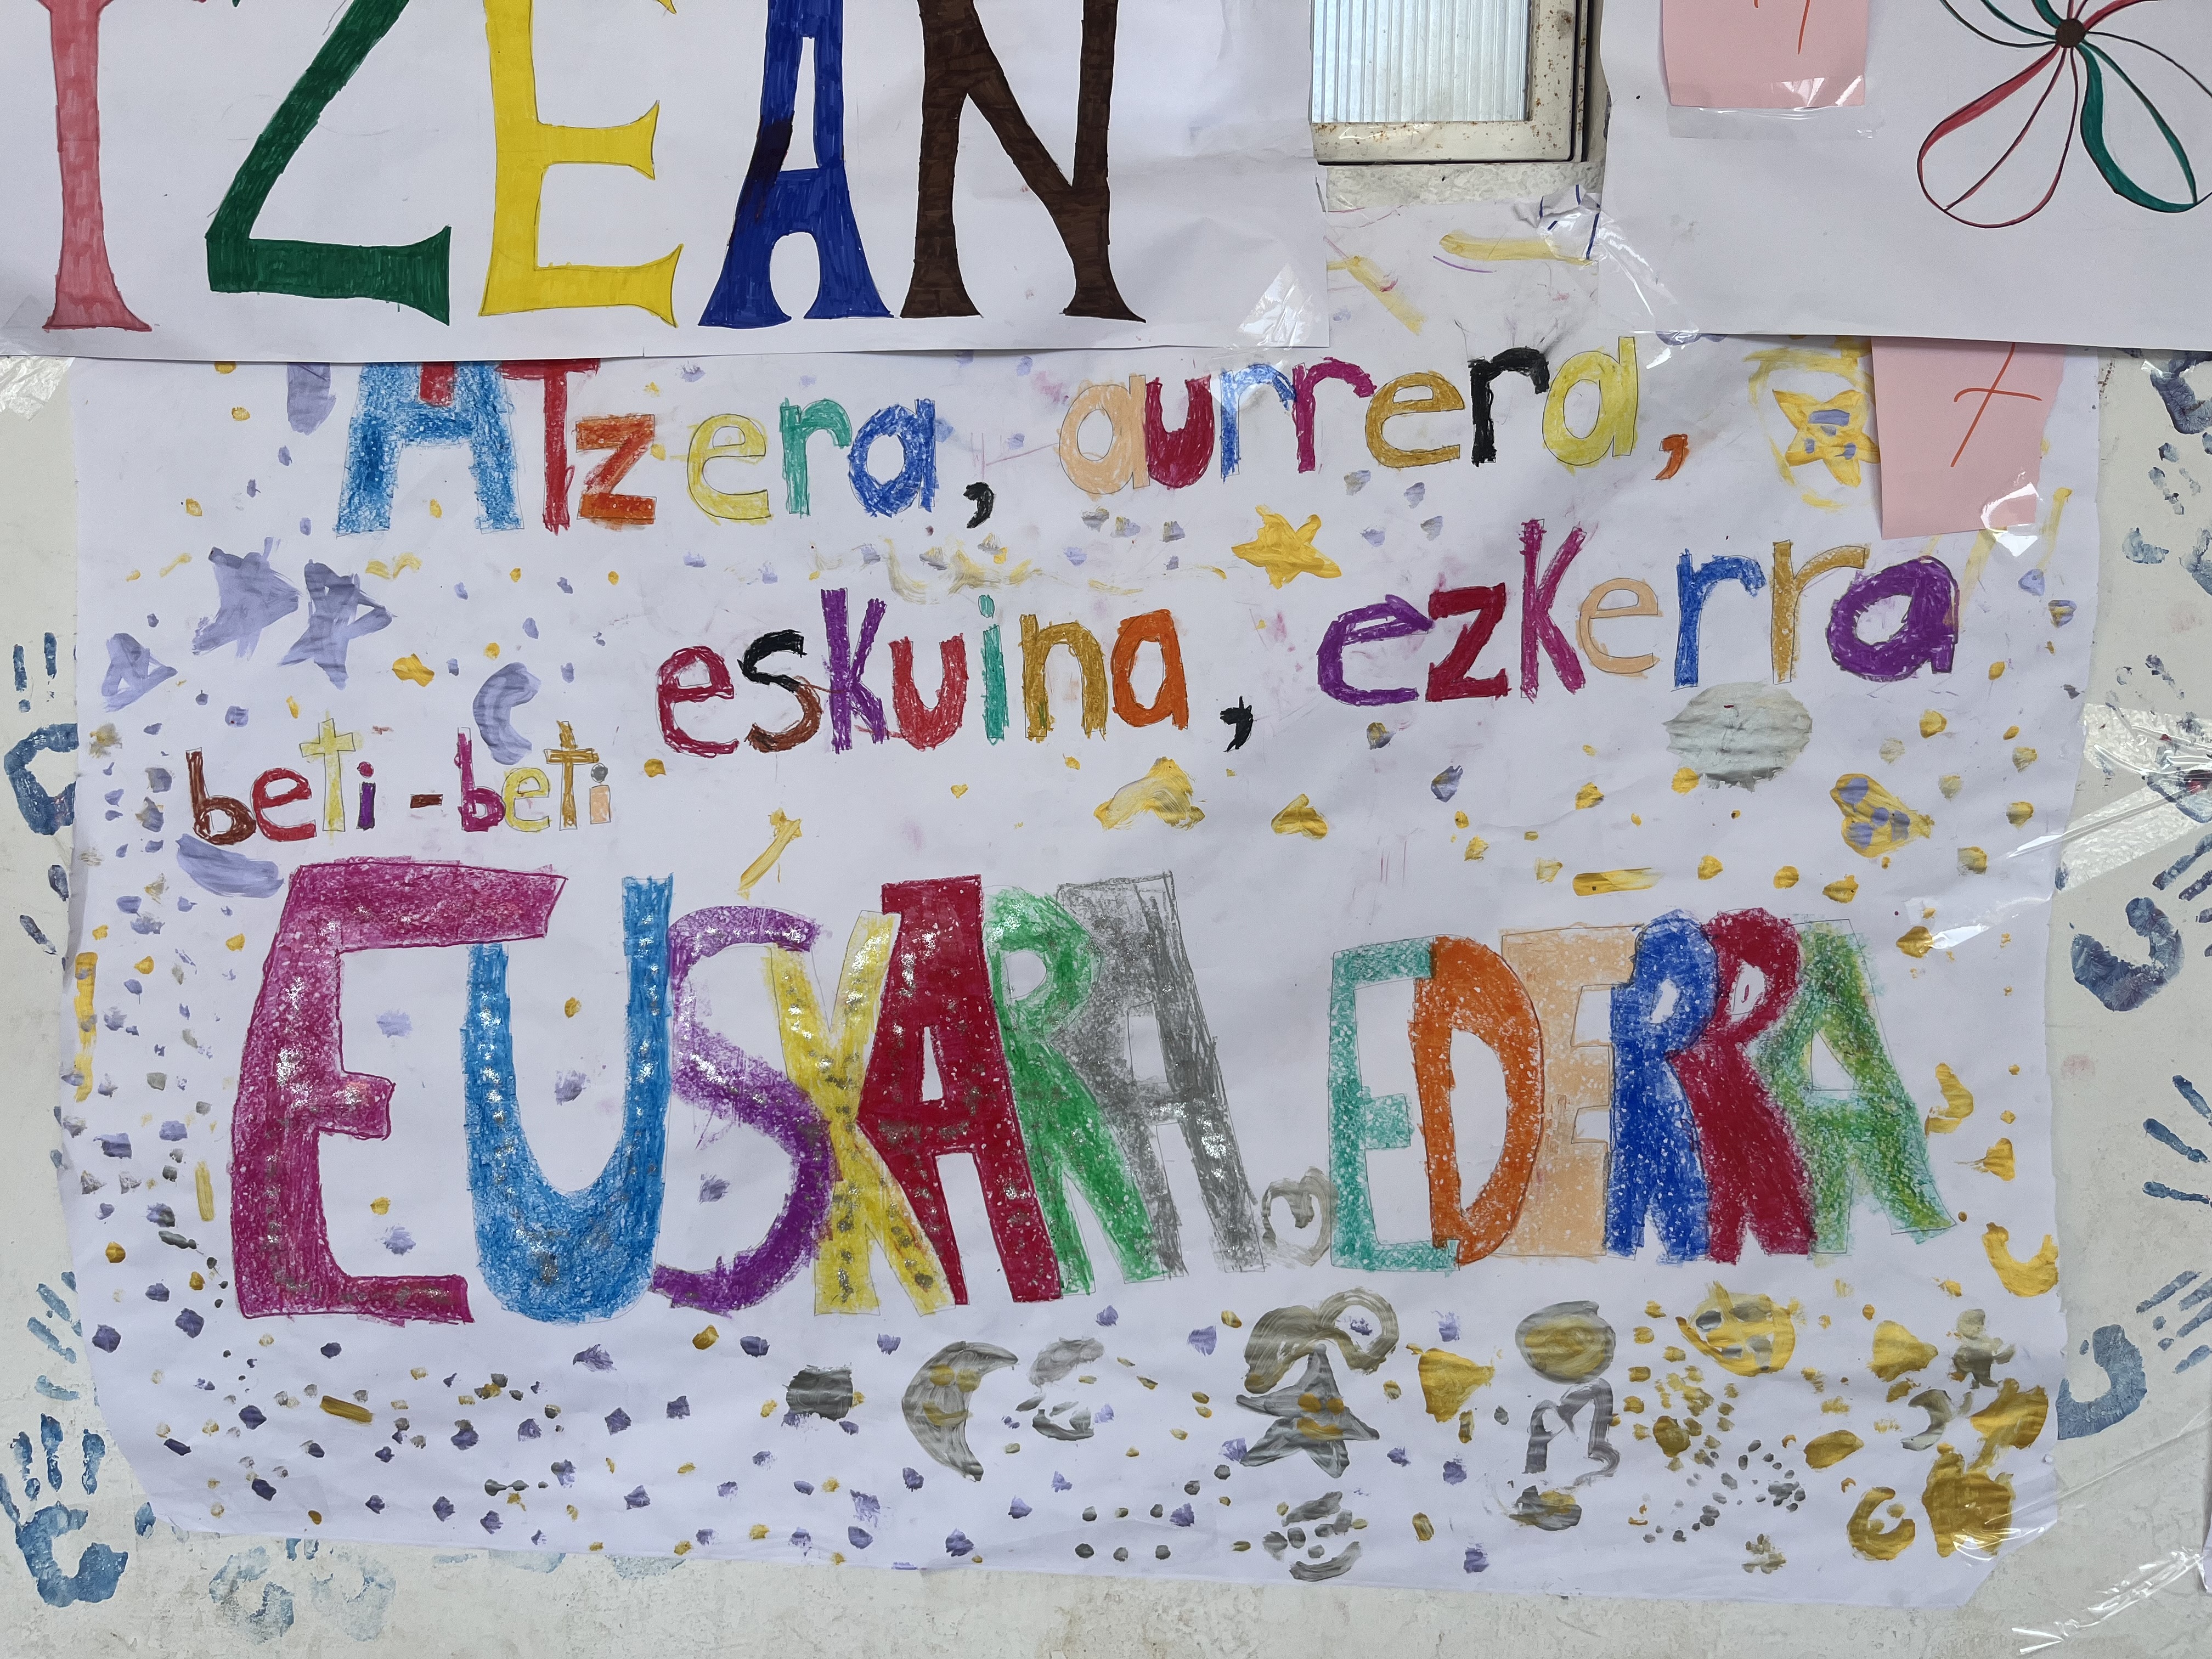 TZEAN
ATzera, aurrera,
7
eskuina, ezkerra
beti-beti
EUSKARA EDERRA